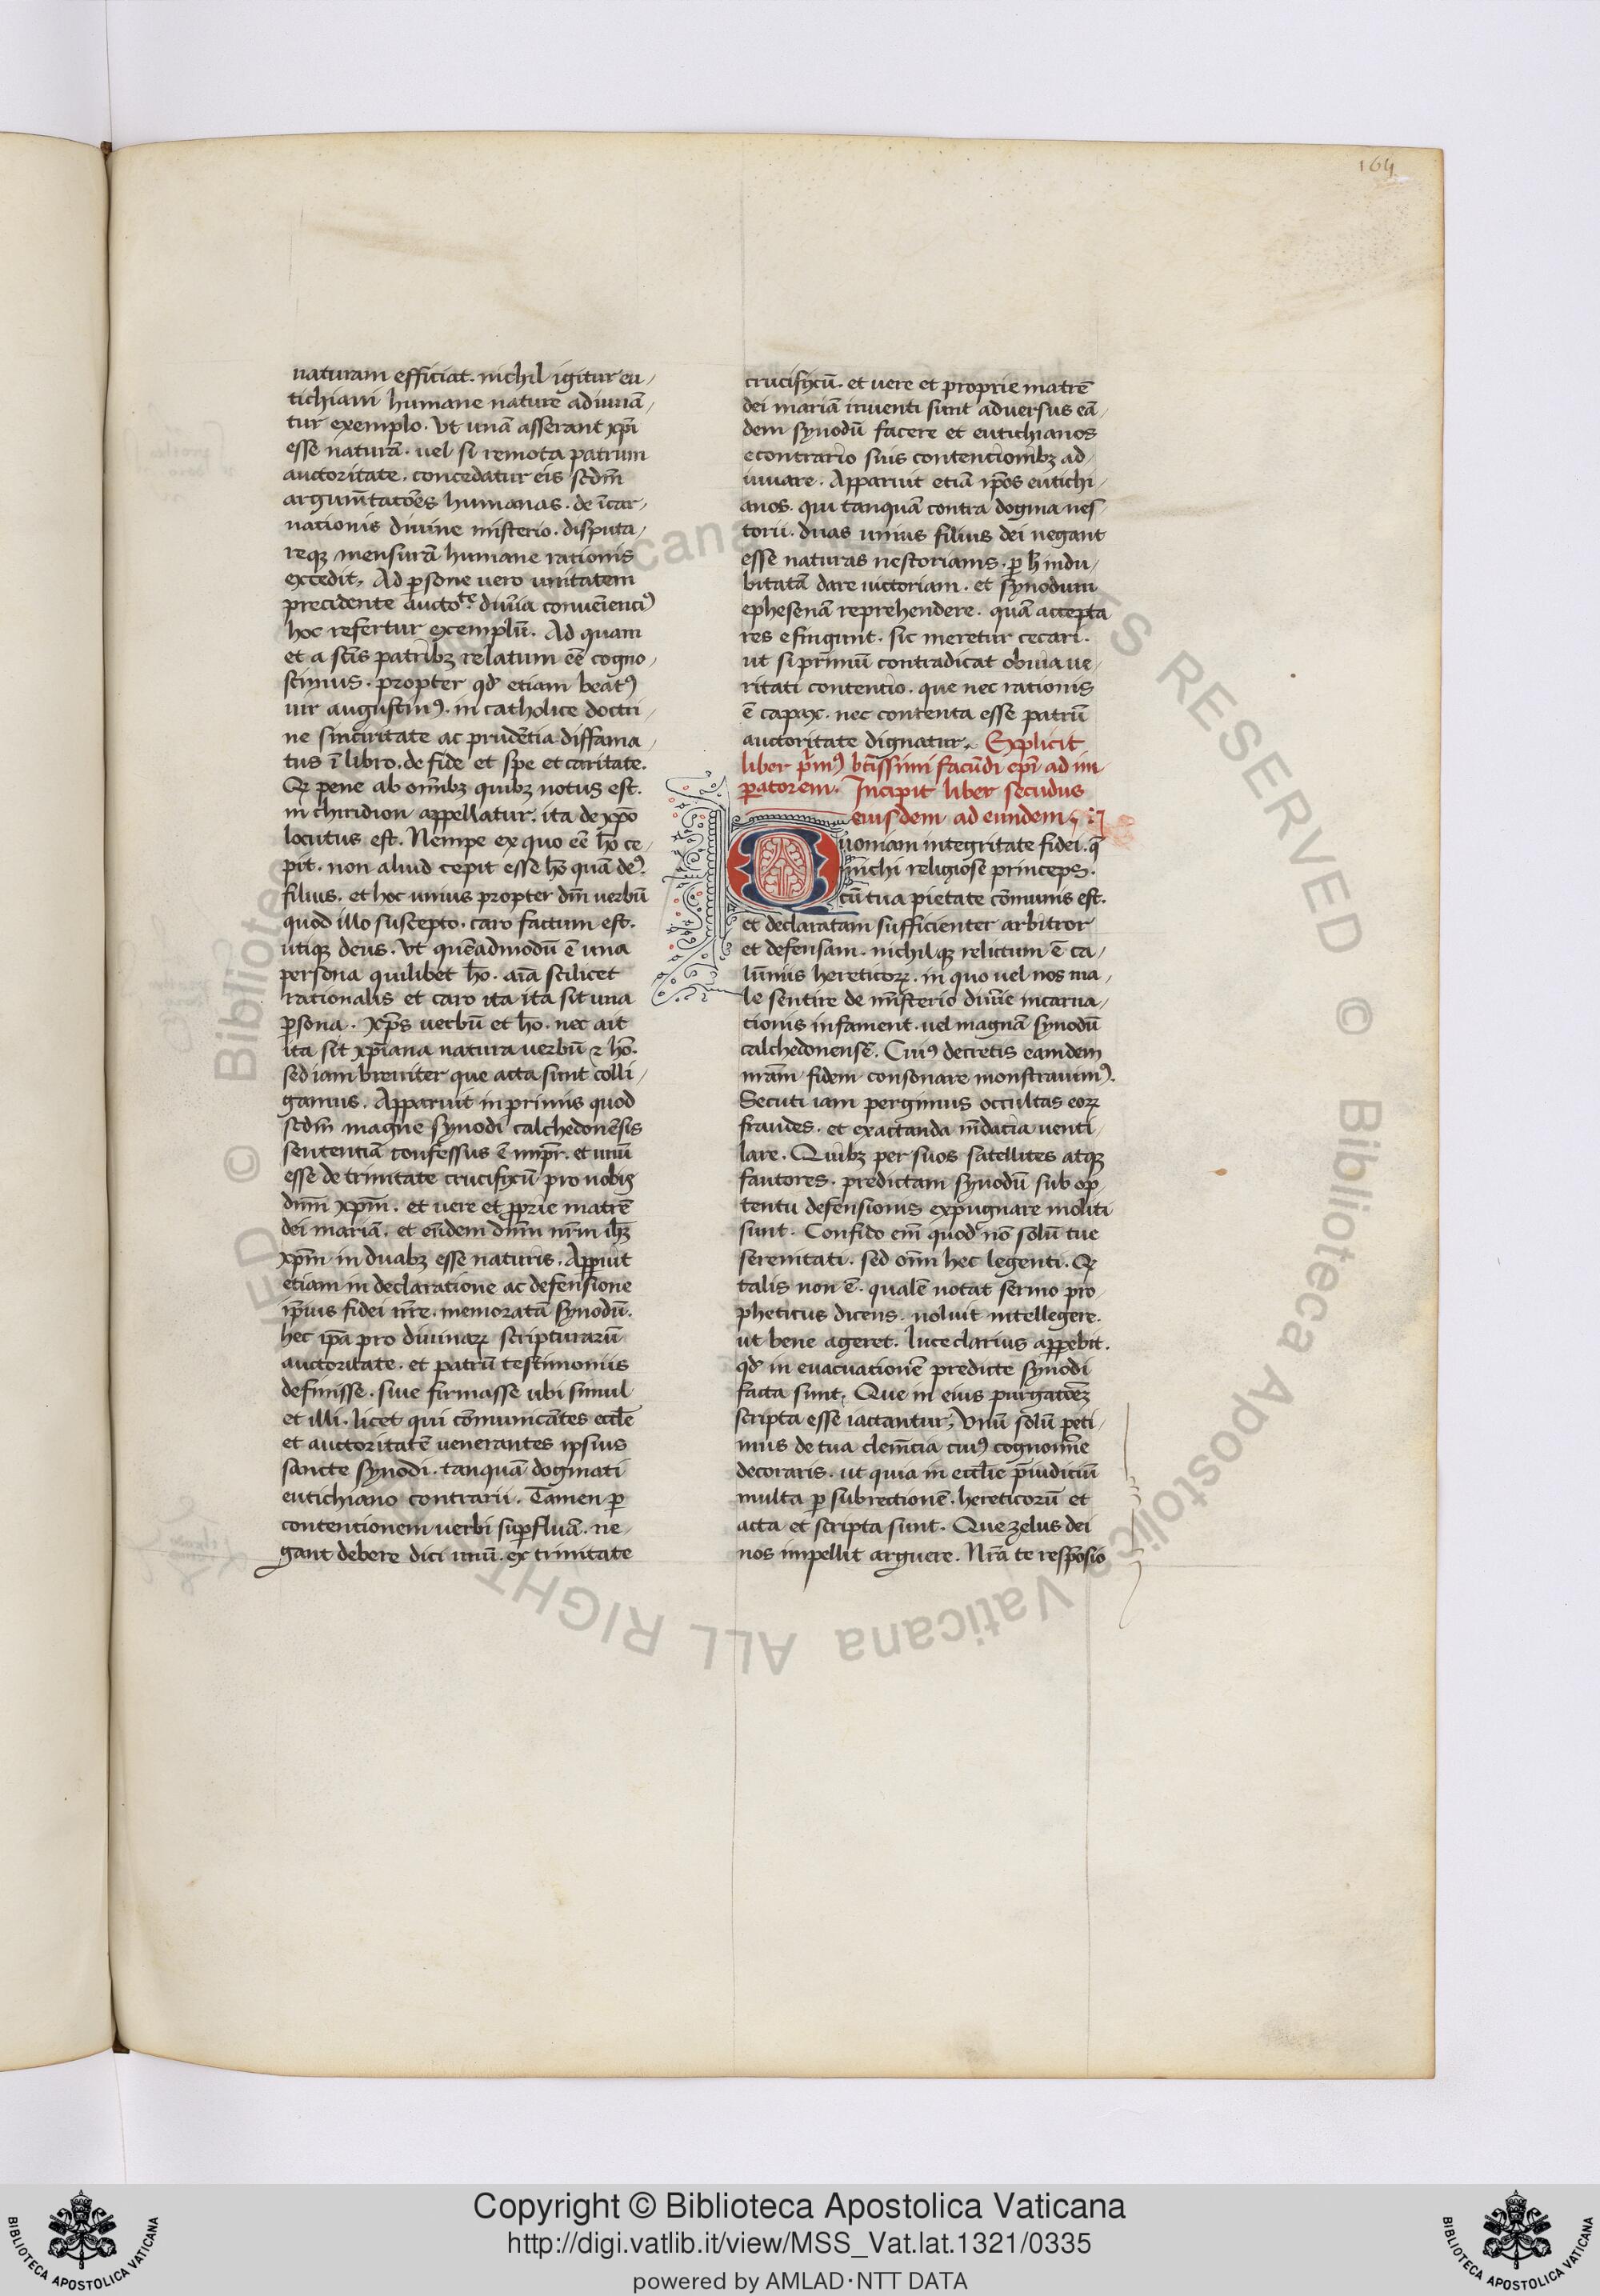 164
naturam efficiat. nichil igitur eu/
tichiani humane nature adiuuā/
tur exemplo. Vt unā asserant xp̄i
esse naturā. uel si remota patrum
auctoritate. concedatur eis scdm̄
argum̄tatōes humanas. de īcar/
nationis diuine misterio. disputa/
reqꝫ mensurā humane rationis
excedit. Ad ꝑsone uero unitatem
precedente auctote. diuīa conueīenciꝰ
hoc refertur exemplū. Ad quam
et a sc̄is patribꝫ relatum eē cogno/
scimus. propter qd̓ etiam beātꝰ
uir augustinꝰ. in catholice doctri/
ne sinciritate ac prudētia diffama/
tus ī libro. de fide et spe et caritate.
Qꝛ pene ab om̄ibꝫ quibꝫ notus est.
in chiridion appellatur. ita de xp̄o
locutus est. Nempe ex quo eē hō ce/
pit. non aliud cepit esse hō quā deꝰ.
filius. et hoc unius propter dm̄ uerbū
quod illo suscepto. caro factum est.
utiqꝫ deus. Vt quēadmodū ē una
persona quilibet hō. aīa scilicet
rationalis et caro ita ita sit una
ꝑsona. xp̄s uerbū et hō. nec ait
ita sit xp̄iana natura uerbū ⁊ hō.
sed iam breuiter que acta sunt colli/
gamus. Apparuit in primis quod
scdm̄ magne synodi calchedonēsis
sententiā confessus ē imp̄r. et unū
esse de trinitate crucifixū pro nobis
dn̄m xp̄m. et uere et ꝓprie matrē
dei mariā. et eūdem dn̄m nr̄m ih̄ꝫ
xp̄m in duabꝫ esse naturis. Apꝑuit
etiam in declaratione ac defensione
ip̄ius fidei nr̄e. memoratā synodū.
hec ip̄a pro diuinaꝝ scripturarū
auctoritate. et patrū testimoniis
definisse. siue firmasse ubi simul
et illi. licet qui cōmunicātes eccl̄e
et auctoritatē uenerantes ipsius
sancte synodi. tanquā dogmati
eutichiano contrarii. Tamen ꝑ
contentionem uerbi suꝑfluā. ne/
gant debere dici unū. ex trinitate
crucifixū. et uere et proprie matrē
dei mariā inuenti sunt aduersus eā/
dem synodū facere et eutichianos
econtrario suis contentionibꝫ ad/
iuuare. Apparuit etiā ip̄os eutichi/
anos. qui tanquā contra dogma nes/
torii. duas unius filius dei negant
esse naturas nestorianis. ꝑ h̄ indu/
bitatā dare uictoriam. et synodum
ephesenā reprehendere. quā accepta
res efingunt. sic meretur cecari.
ut si primū contradicat obuia ue/
ritati contentio. que nec rationis
ē capax. nec contenta esse patrū
auctoritate dignatur. Explicit
liber p̄mꝰ bt̄issimi facūdi ep̄i ad im
ꝑatorem. Incipit liber secūdus
eiusdem ad eundem.
Quoniam integritate fidei. q̄
michi religiose princeps.
cū tua pietate cōmunis est.
et declaratam sufficienter arbitror
et defensam. nichil qꝫ relictum ē ca/
lūniis hereticoꝝ. in quo uel nos ma/
le sentire de misterio diuīe incarna/
tionis infament. uel magnā synodū
calchedonensē. Cuiꝰ decretis eamdem
nr̄am fidem consonare monstrauimꝰ.
Secuti iam pergimus occultas eoꝝ
fraudes. et exactanda m̄dacia uenti/
lare. Quibꝫ per suos satellites atqꝫ
fautores. predictam synodū sub op/
tentu defensionis expugnare moliti
sunt. Confido em̄ quod nō solū tue
serenitati. sed om̄i hec legenti. Qꝛ
talis non ē. qualē notat sermo pro
pheticus dicens. noluit intellegere.
ut bene ageret. luce clarius apꝑebit.
qd̓ in euacuationē predicte synodi
facta sunt. Que in eius purgatiōeꝫ
scripta esse iactantur. Vnū solū peti/
mus de tua clem̄cia cuiꝰ cognomīe
decoraris. ut quia in eccl̄ie p̄iudiciū
multa ꝑ subrectionē. hereticorū et
acta et scripta sunt. Que zelus dei
nos impellit arguere. Nr̄a te resp̄osio
Copyright © Biblioteca Apostolica Vaticana
http://digi.vatlib.it/view/MSS_Vat.lat.1321/0335
powered by AMLAD·NTT DATA
BIBLIOTECA APOSTOLICA VATICANA
BIBLIOTECA APOSTOLICA VATICANA
© Biblioteca Apostolica Vaticana ALL RIGHTS RESERVED